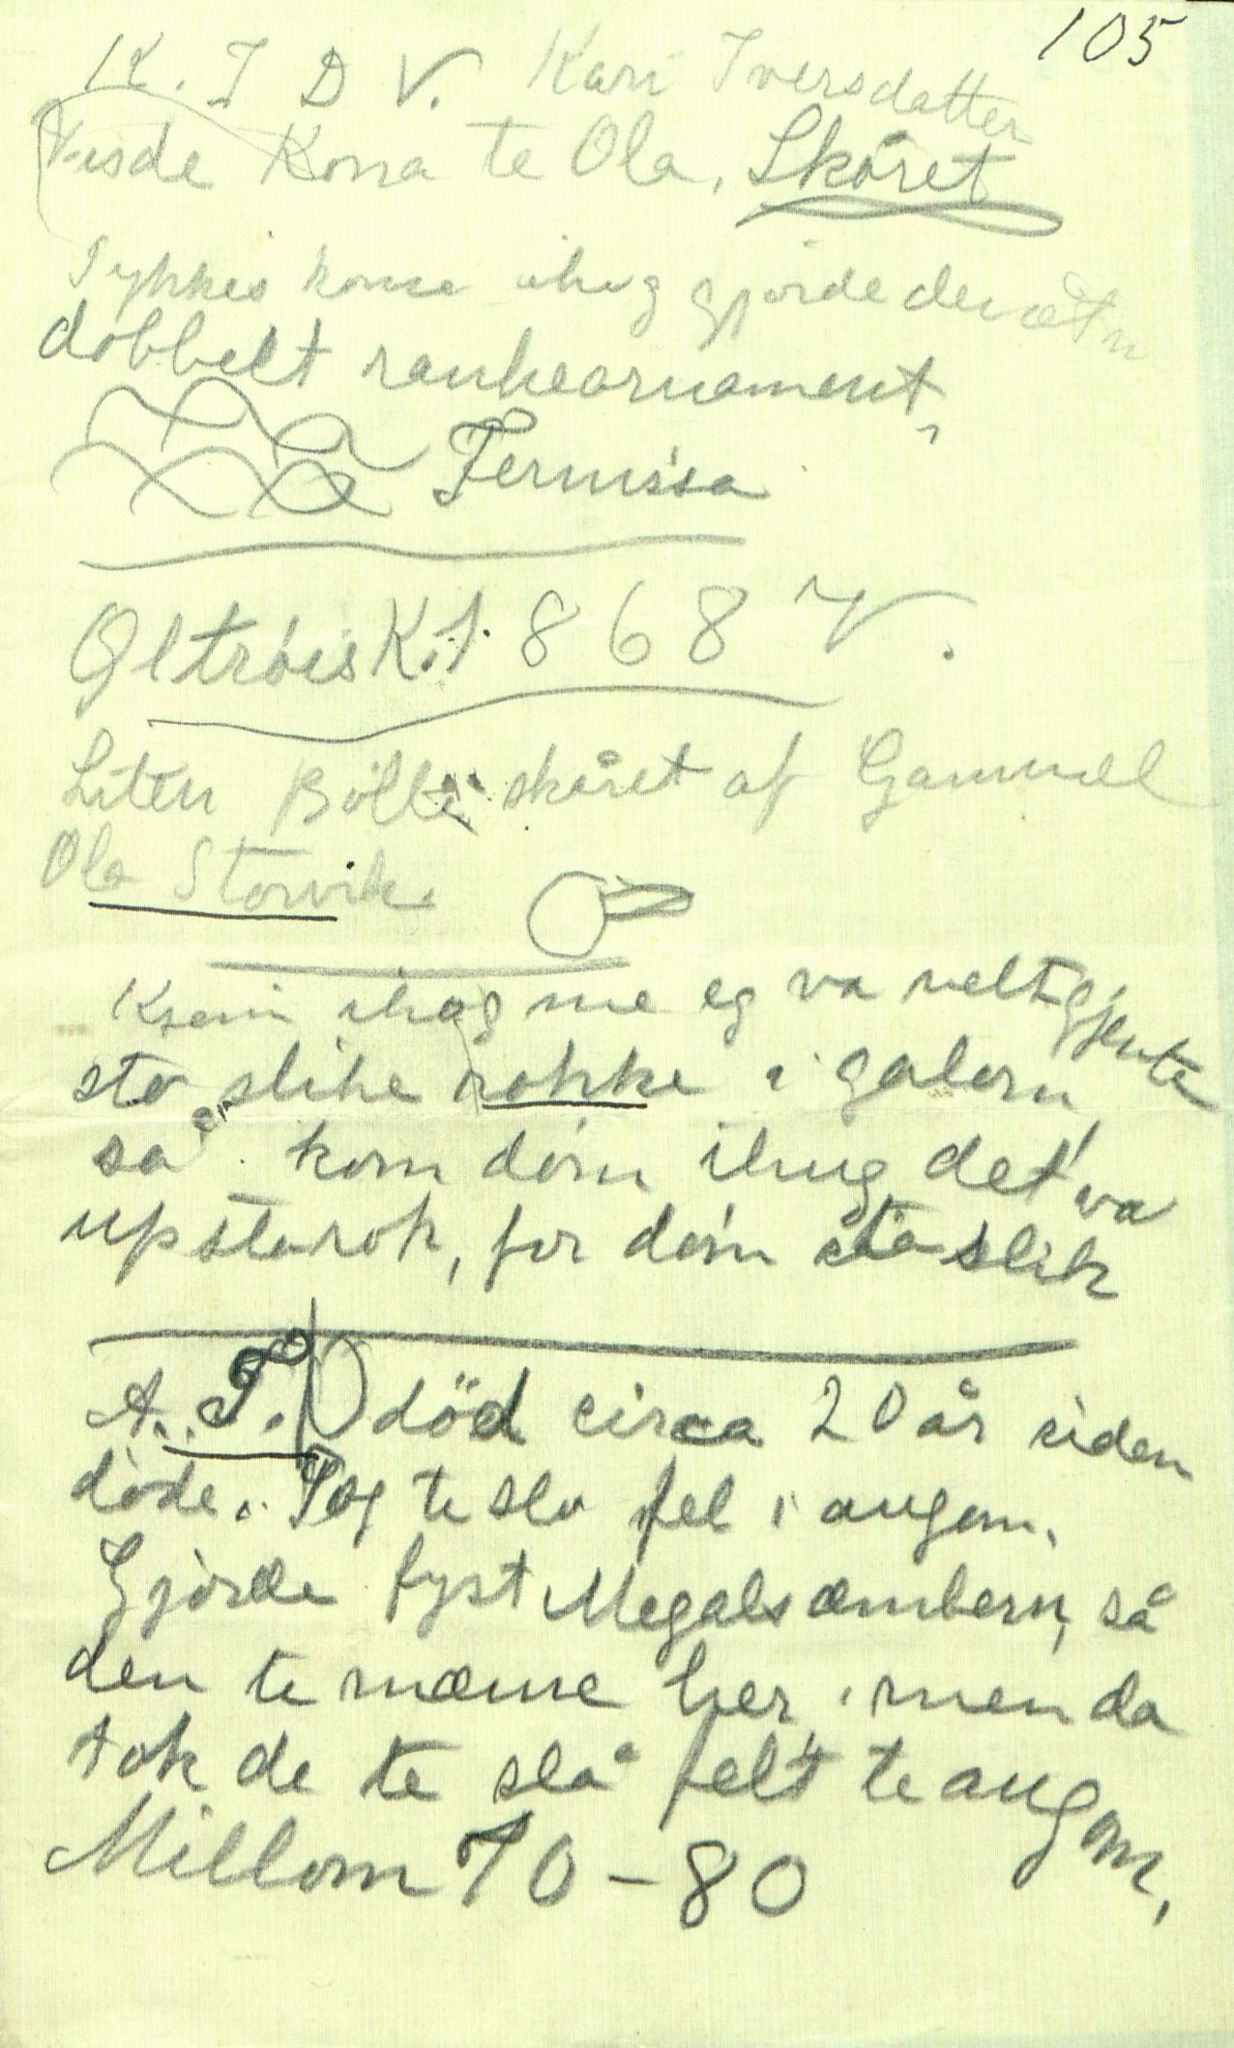 105
K. I D V. Kari Iversdatter
Visde Kona te Ola, Skåret
Tykkes koma ihug gjorde den
dobbelt rankeornament,
Fernissa
Øltrøis K. 1. 868 V.
Liten Bölle skåret af Gammel
Ola Storvik.
ihog me eg va gjente
sto slike rokke i galorn,
så kom dom ihug det va
upstarok, for dom sto slik
A. T. D död circa 20 år siden
döde. Tog te slo fel i augom.
Gjorde fyst Megalsambern, så
den te mæme her, men da
tok de te slå felt te augom,
Millom 70-80